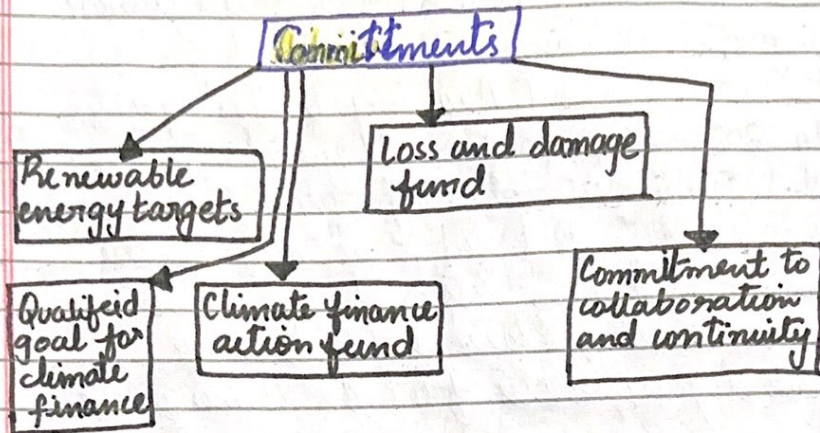 Committments
Renewable
energy targets
Loss and damage
fund
Qualifeid
goal for
climate
finance
Climate finance
action fund
Commitment to
collaboration
and continuity